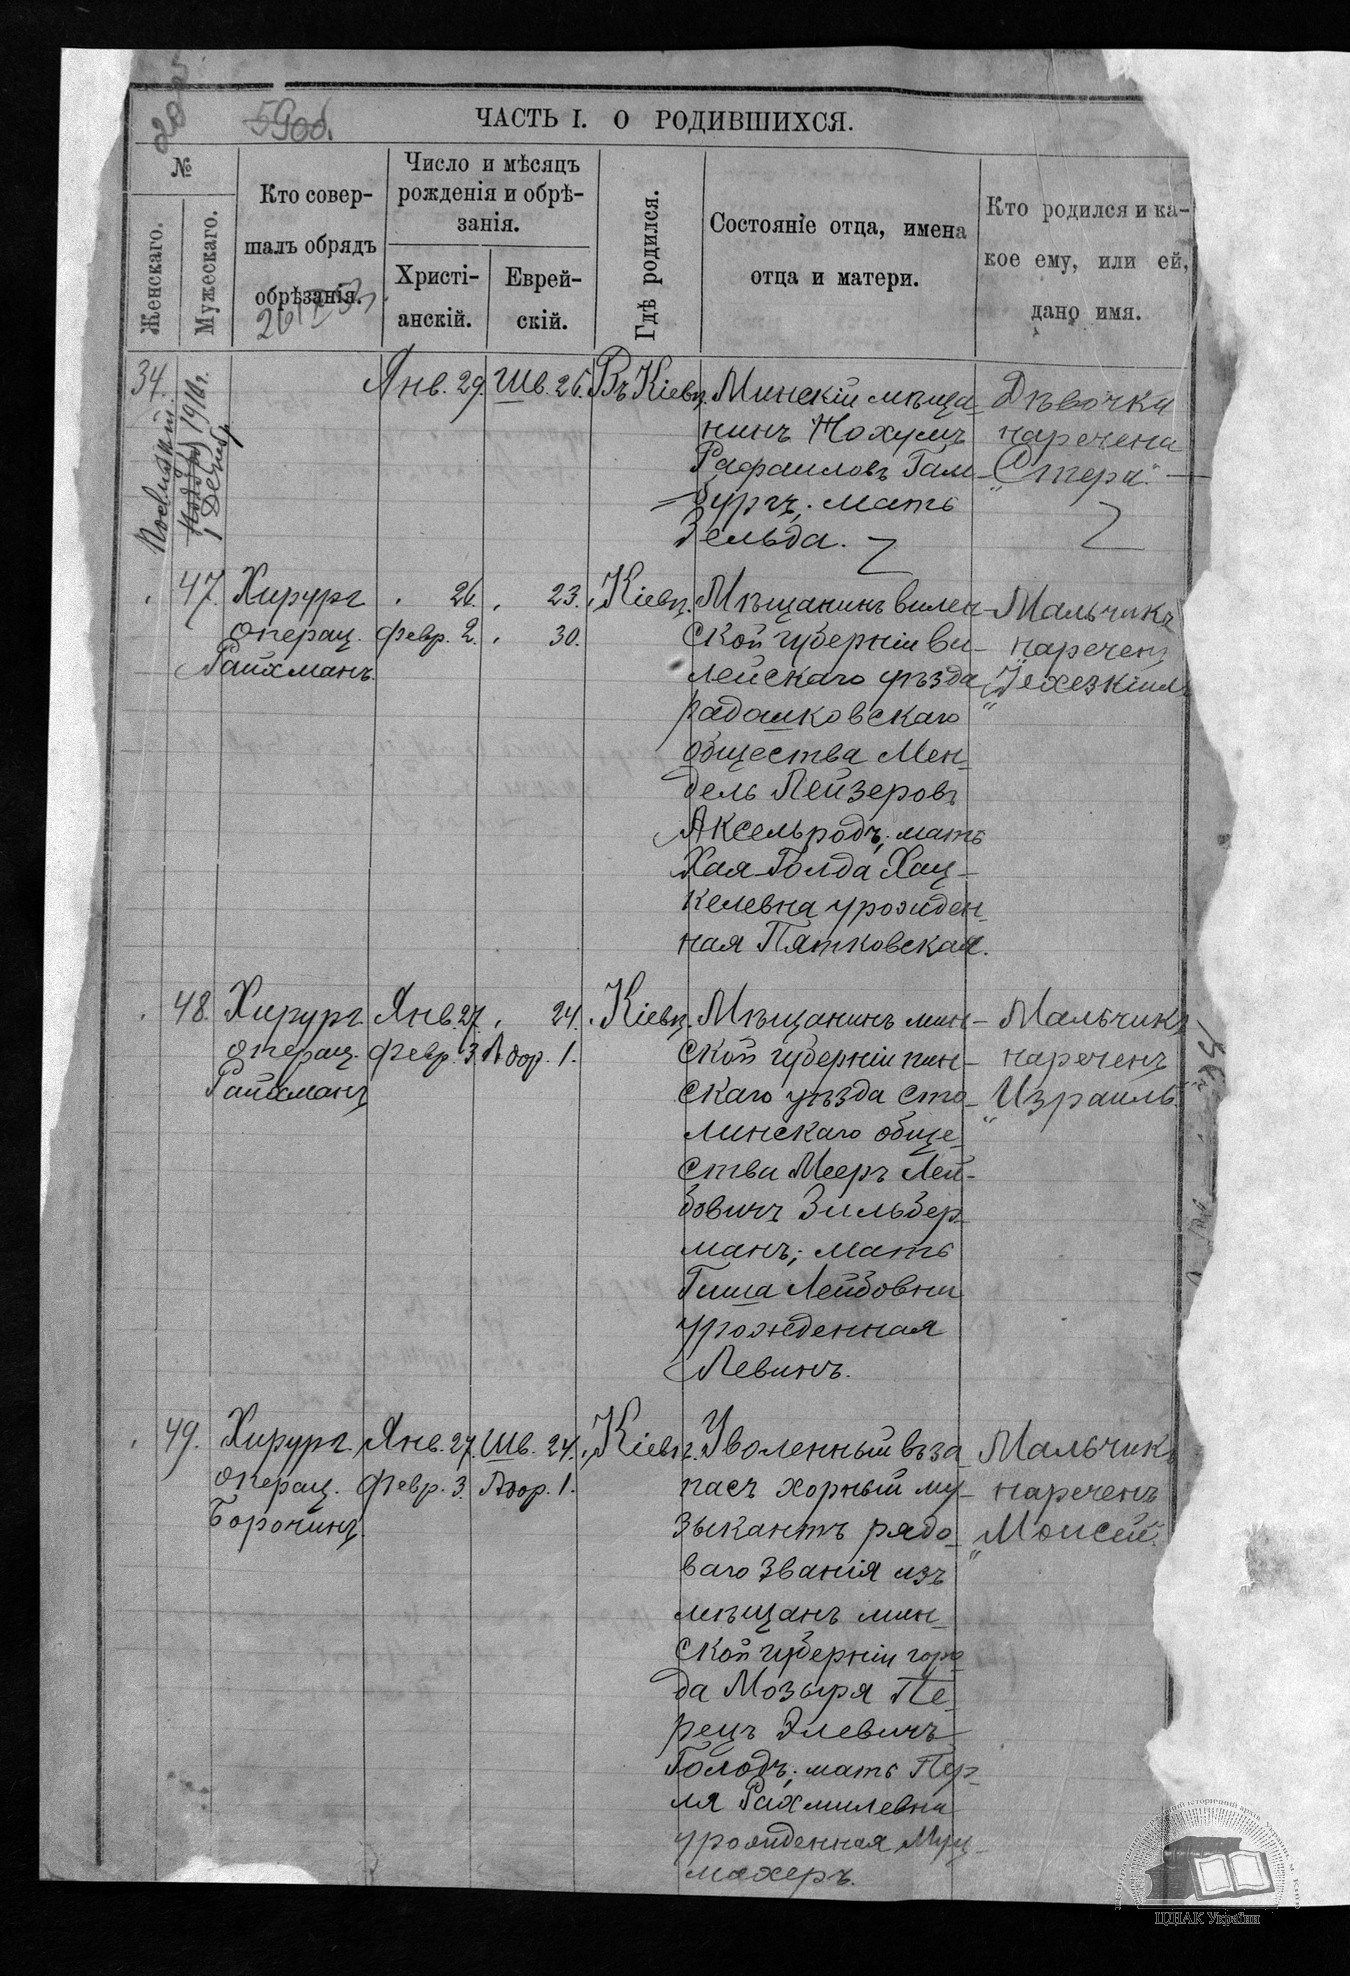 ЧАСТЬ I. О РОДИВШИХСЯ.
№
Женскаго.
Мужескаго.
Кто совер-
шалъ обрядъ
обрѣзанія.
Число и мѣсяцъ
рожденія и обрѣ-
занія.
Христі-
анскій.
Еврей-
скій.
Гдѣ родился.
Состояніе отца, имена
отца и матери.
Кто родился и ка-
кое ему, или ей,
дано имя.
34.
Янв. 29.
Шв. 26.
Въ Кіевѣ.
Минскій мѣща-
нинъ Нохумъ
Рафаиловъ Гам-
бургъ; мать
Зельда.
Дѣвочка
наречена
„Стера".
47.
Хирург
операц.
Райхманъ
" 26.
февр. 2.
" 23.
" 30.
" Кіевѣ.
Мѣщанинъ вилен-
ской губерніи ви-
лейскаго уѣзда
радошковскаго
общества Мен-
дель Лейзеровъ
Аксельродъ; мать
Хая-Голда Хац-
келевна урожден-
ная Пятковская.
Мальчикъ
нареченъ
„Іехезкіиль
48.
Хирург
операц.
Райхманъ
Янв. 27.
февр. 3.
" 24.
Адор. 1.
" Кіевѣ.
Мѣщанинъ мин-
ской губерніи пин-
скаго уѣзда сто-
линскаго обще-
ства Мееръ Лей-
бовичъ Зильбер-
манъ; мать
Гиша Лейбовна
урожденная
Левинъ.
Мальчикъ
нареченъ
„Израиль".
49.
Хирург
операц.
Борочинъ
Янв. 27.
февр. 3.
Шв. 24.
Адор. 1.
" Кіевѣ.
Уволенный въ за-
пасъ хорный му-
зыкантъ рядо-
ваго званія изъ
мѣщанъ мин-
ской губерніи горо-
да Мозыря Пе-
рецъ Элевичъ
Голодъ; мать Пер-
ля Рахмилевна
урожденная Муц-
махеръ.
Мальчикъ
нареченъ
„Моисей".
ЦДІАК України